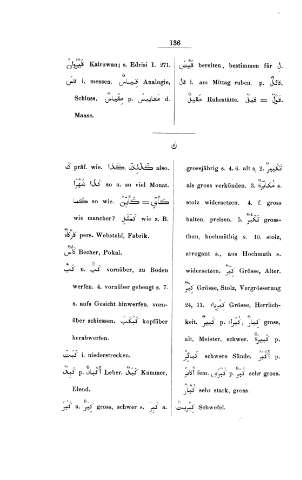 136
قَيْرَوَانٌ Kairawan; s. Edrisi I. 271.
قاس i. messen. قِيَاسٌ Analogie,
Schluss. مِقْيَاسٌ p. مَقَايِيسُ d.
Maass.
قيّض bereiten, bestimmen für لِ.
قال i. am Mittag ruhen. p. قَائِلٌ
قَيْلٌ = مَقِيلٌ Ruhestätte.
ك
كَ präf. wie. كَذٰلِكَ ,كَذَا also.
كَذَا شَهْرًا so u. so viel Monat.
كَمَا so wie. كَأَيٍّ = كَأَيِّنْ
wie mancher? كَمَثَلِ wie z. B.
pers. Webstuhl, Fabrik.
كَأْسٌ Becher, Pokal.
كَبَّ u. vornüber, zu Boden
werfen. 4. vornüber gebeugt s. 7.
s. aufs Gesicht hinwerfen. vorn-
über schiessen. kopfüber
herabwerfen.
كبت i. niederstrecken.
كَبِدٌ p. أَكْبَادٌ Leber. كَبَدٌ Kummer,
Elend.
كبر a. gross, schwer s. كبر a.
grossjährig s. 4. 6. alt s. 2. تَكْبِيرٌ
als gross verkünden. 3. مُكَابَرَةٌ s.
stolz widersetzen. 4. f. gross
halten, preisen. 5. تَكَبُّرٌ gross-
thun, hochmüthig s. 10. stolz,
arrogant s., aus Hochmuth s.
widersetzen. كِبَرٌ Grösse, Alter.
كِبْرٌ Grösse, Stolz, Vergrösserung
24, 11. كِبْرِيَاءُ Grösse, Herrlich-
keit. كَبِيرٌ p. كُبَرَاءُ ,كِبَارٌ gross,
alt, Meister, schwer. كَبِيرَةٌ p.
كَبَائِرُ schwere Sünde. أَكْبَرُ p.
أَكَابِرُ fem. كُبْرَى p. كُبَرٌ sehr gross.
كُبَّارٌ sehr stark, gross
كِبْرِيتٌ Schwefel.